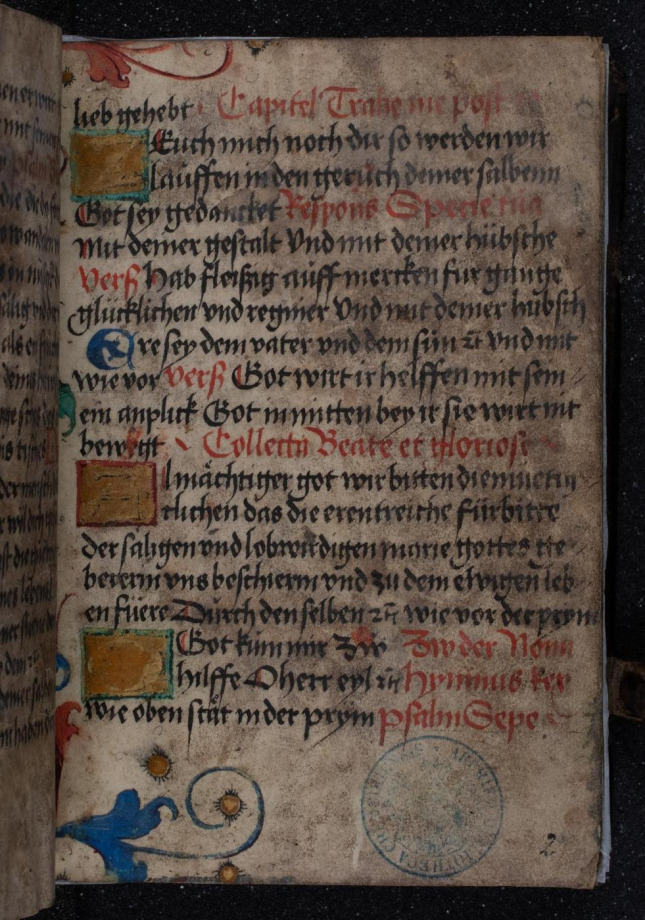 lieb gehebt Capitel Trahe me post
Zeuch mich noch dir so werden wir
lauffen in den geruch deiner salbenn
Got sey gedancket Respons Specie tua
Mit deiner gestalt Vnd mit deiner hübsche
Verß Hab fleißig auff mercken fur gange
glücklichen vnd regnier Vnd mit deiner hübsch
Ere sey dem vater vnd dem sün ⁊c vnd mit
wie vor Verß Got wirt ir helffen mit sein
em anplick Got in mitten bey ir sie wirt nit
bewegt Collecta Beate et gloriose
Almächtiger got wir bitten die
rlichen das die erentreiche fürbitte
der saligen vnd lobwirdigen marie gottes ge
bererin vns beschierm vnd zu dem ewigen leb
en füere Durch den selben ⁊c wie vor der prym
Got kum mir zw Zw der Nonn
hilffe O herr eyl ⁊c Hymnus Rex
wie oben stat in der prym psalm Sepe
2